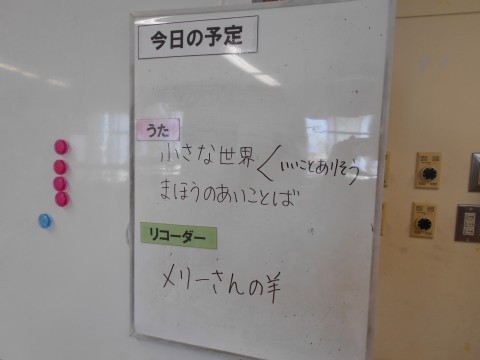 今日の予定
うた
小さな世界<いいことありそう
まほうのあいことば
リコーダー
メリーさんの羊